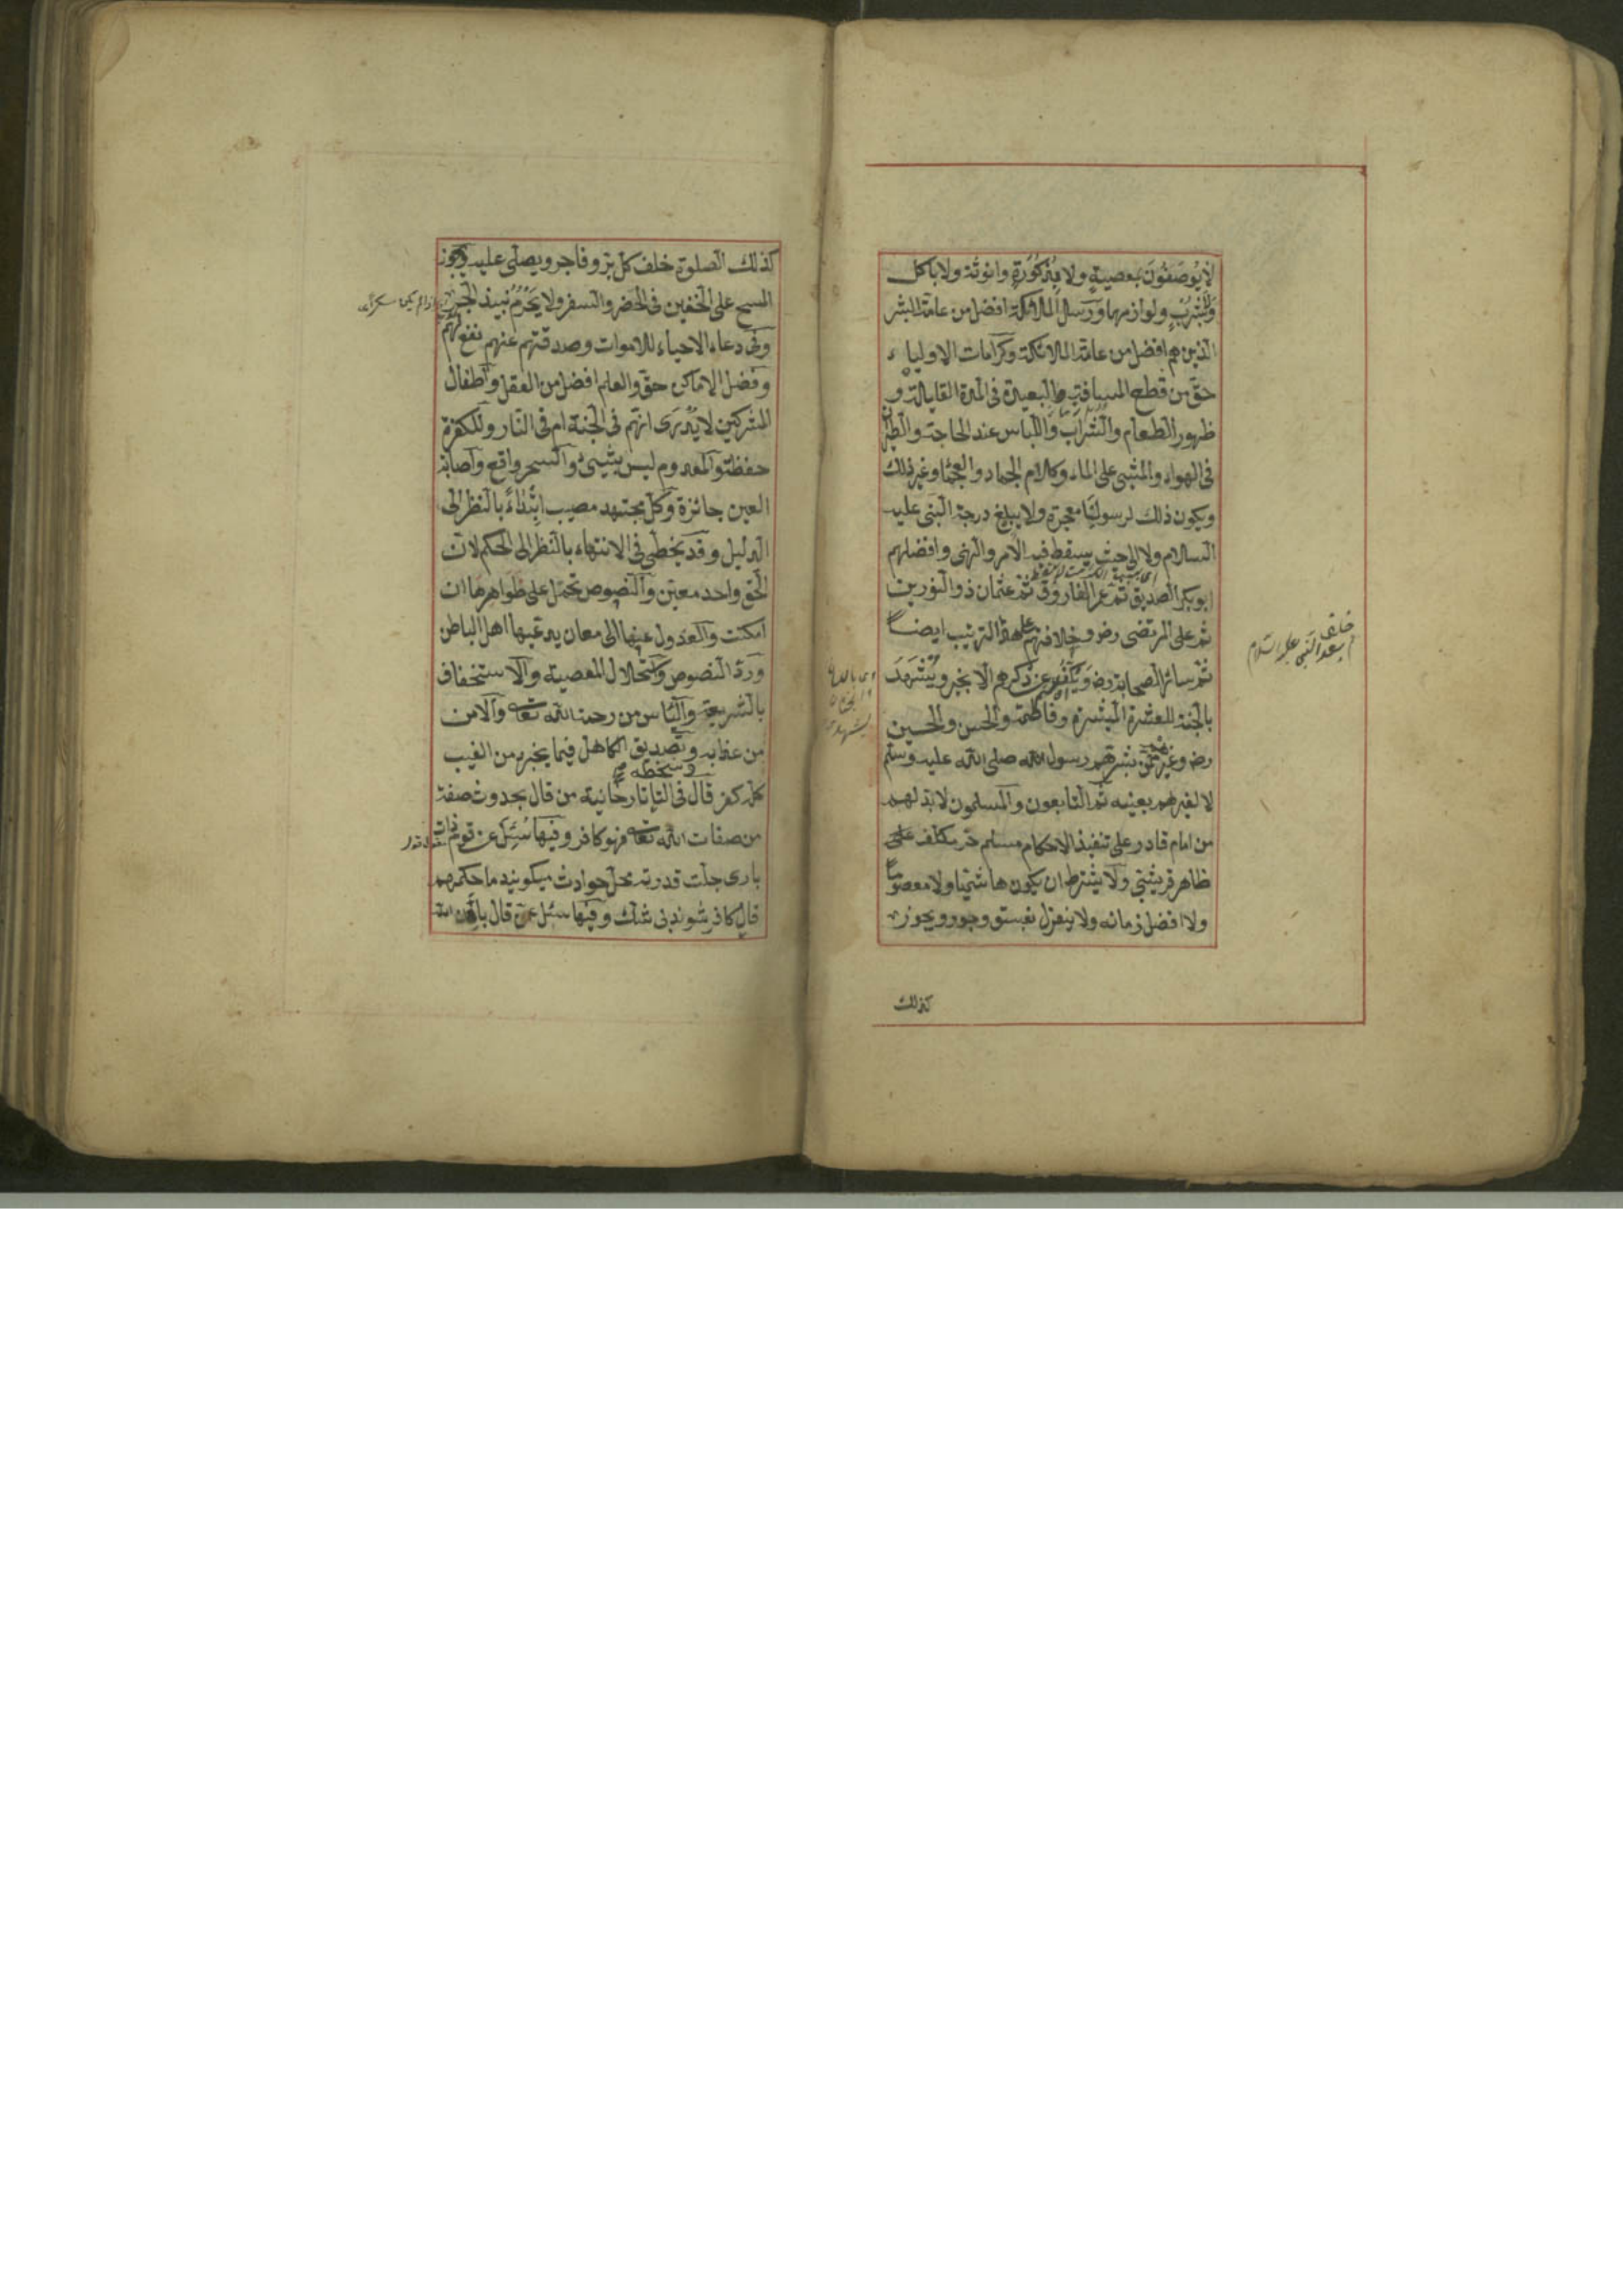 لا يُوصَفُونَ بمعصيةٍ ولا بذُكُورَةٍ وانوثة ولا باكل
وَشُرْبٍ ولوازمهما ورسل الملائكة افضل من عامة البشر
الذين هم افضل من عامة الملائكة وكرامات الاولياء
حق من قطع المسافة البعيدة فى المدة القليلة و
ظهور الطعام والشراب واللباس عند الحاجة والطيران
فى الهواء والمشى على الماء وكلام الجماد والعجماء وغير ذلك
ويكون ذلك لرسولنا معجزة ولا يبلغ درجة النبى عليه
السلام ولا الى حيث يسقط فيه الامر والنهى وافضلهم
ابوبكر الصديق ثم عمر الفاروق ثم عثمان ذو النورين
ثم على المرتضى رضه وخلافتهم على هذا الترتيب ايضاً
ثم سائر الصحابة رضه ويكف عن ذكرهم الا بخير ويُشْهَدُ
بالجنة للعشرة المبشرة وفاطمة والحسن والحسين
رضه وغيرهم ممن بشرهم رسول الله صلى الله عليه وسلم
لا لغيرهم بعينه ثم التابعون والمسلمون لا بد لهم
من امام قادر على تنفيذ الاحكام مسلم حر مكلف
ظاهر قريشى ولا يشترط ان يكون هاشميا ولا معصوماً
ولا افضل زمانه ولا ينعزل بفسق وجور ويجوز
كذلك
بعد النبى عليه السلام
كذلك الصلوة خلف كل بر وفاجر ويصلى عليه ويجوز
المسح على الخفين فى الحضر والسفر ولا يَحْرُمُ نبيذ الجر
وفى دعاء الاحياء للاموات وصدقتهم عنهم نفع لهم
وفضل الاماكن حق والعلم افضل من العقل واطفال
المشركين لا يُدْرَى انهم فى الجنة ام فى النار وللكفرة
حفظة والمعدوم ليس بشيئ والسحر واقع واصابة
العين جائزة وكل مجتهد مصيب ابتداءً بالنظر الى
الدليل وقد يخطئ فى الانتهاء بالنظر الى الحكم لان
الحق واحد معين والنصوص تحمل على ظواهرها ان
امكنت والعدول عنها الى معان يدعيها اهل الباطن
ورد النصوص واستحلال المعصية والاستخفاف
بالشريعة والياس من رحمة الله تعالى والامن
من عذابه وتصديق الكاهل فيما يخبره من الغيب
وسخطه صح
كله كفر قال فى التاتارخانية من قال بحدوث صفة
من صفات الله تعالى فهو كافر وفيها سُئِلَ عن قوم ذات
بارى جلت قدرته محل حوادث ميكويند ما حكمهم
قال كافر شوند بى شك وفيها سئل عن قال بان